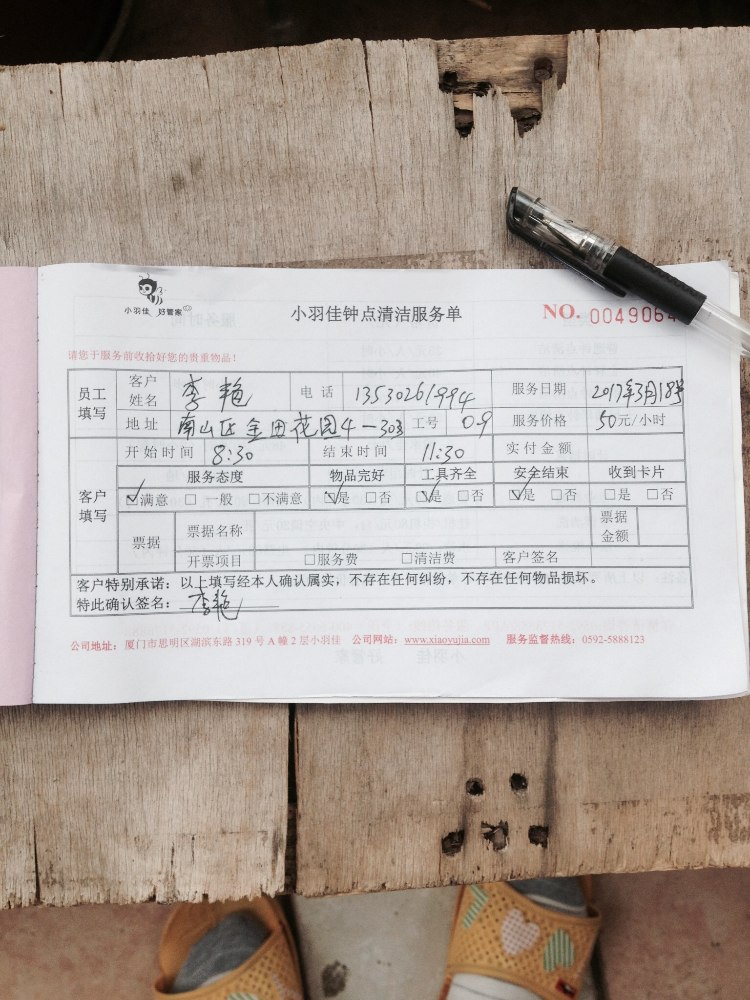 小羽佳 好管家
小羽佳钟点清洁服务单
NO. 0049064
请您于服务前收拾好您的贵重物品！
员工填写 客户姓名 李艳 电话 13530261994 服务日期 2017年3月18号
地址 南山区金田花园4一303 工号 09 服务价格 50元/小时
客户填写 开始时间 8:30 结束时间 11:30 实付金额
服务态度 物品完好 工具齐全 安全结束 收到卡片
☑满意 □一般 □不满意 ☑是 □否 ☑是 □否 ☑是 □否 □是 □否
票据 票据名称 票据金额
开票项目 □服务费 □清洁费 客户签名
客户特别承诺：以上填写经本人确认属实，不存在任何纠纷，不存在任何物品损坏。
特此确认签名：李艳
公司地址：厦门市思明区湖滨东路319号A幢2层小羽佳 公司网站：www.xiaoyujia.com 服务监督热线：0592-5888123